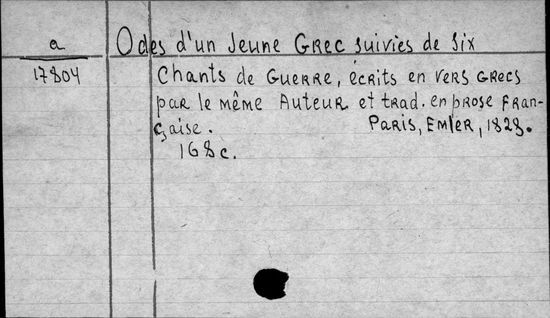 a Odes d'un Jeune Grec suivies de six
17804 Chants de Guerre, écrits en vers Grecs
par le même Auteur et trad. en prose Fran-
çaise. Paris, Emler, 1828.
168c.